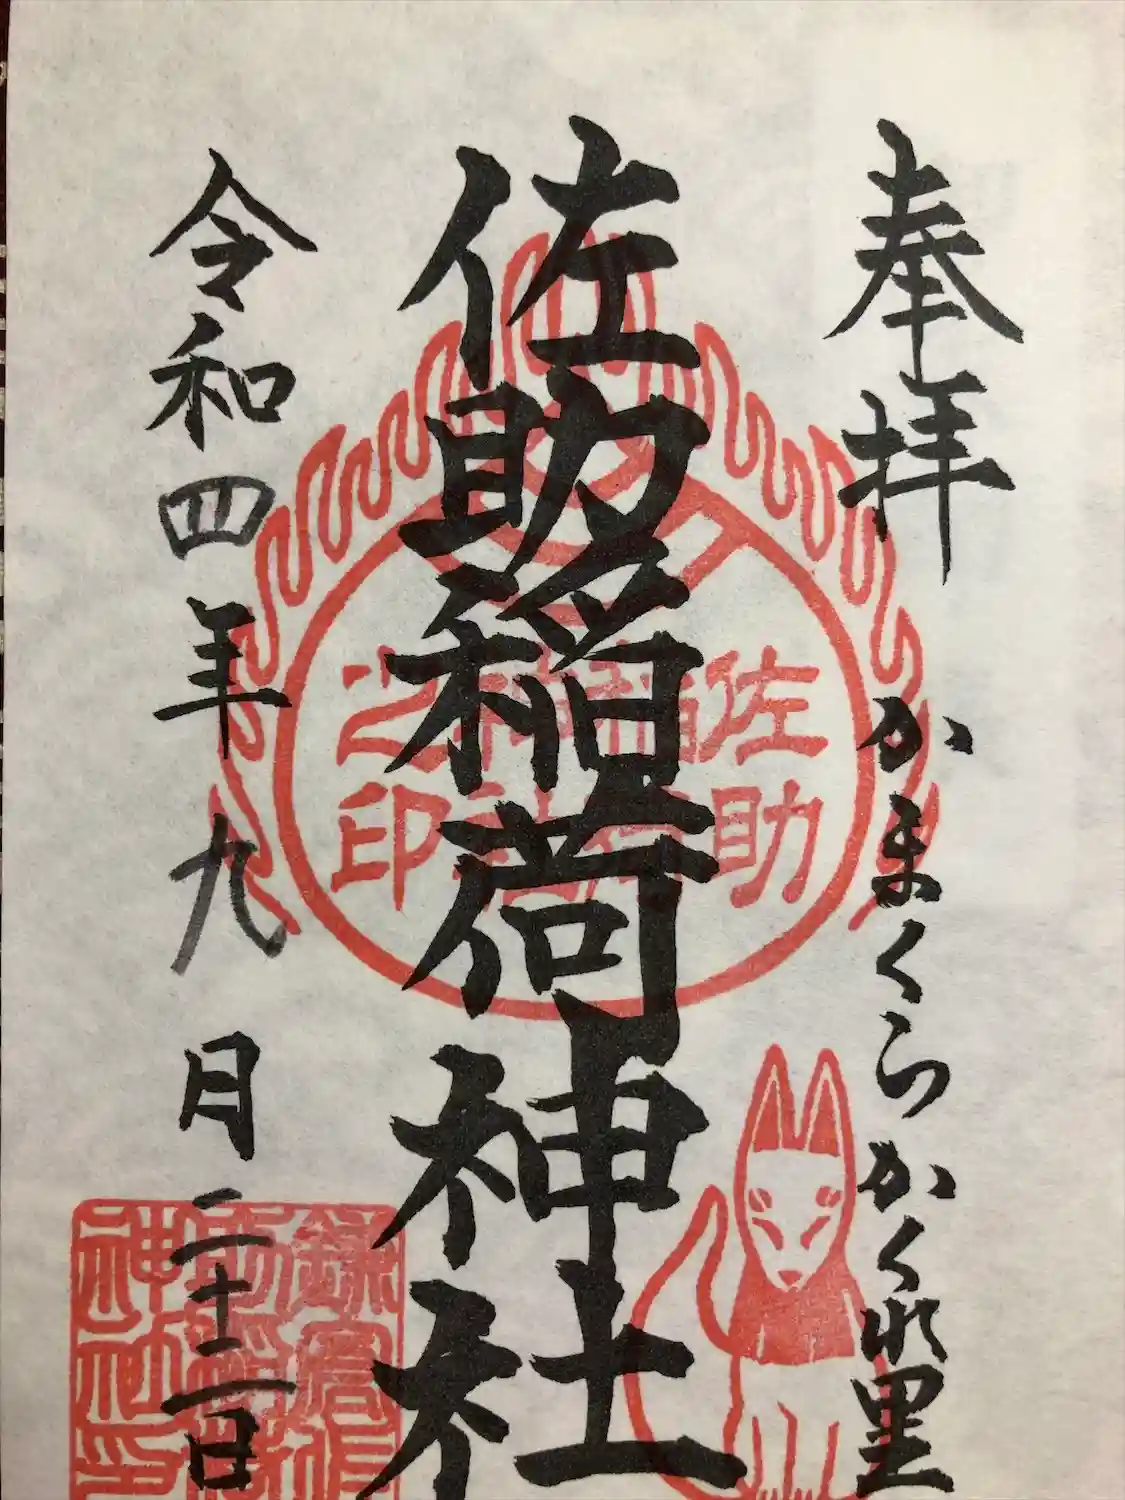 奉拝 かまくらかくれ里
佐助稲荷神社
令和四年九月二十二日
佐助稲荷神社之印